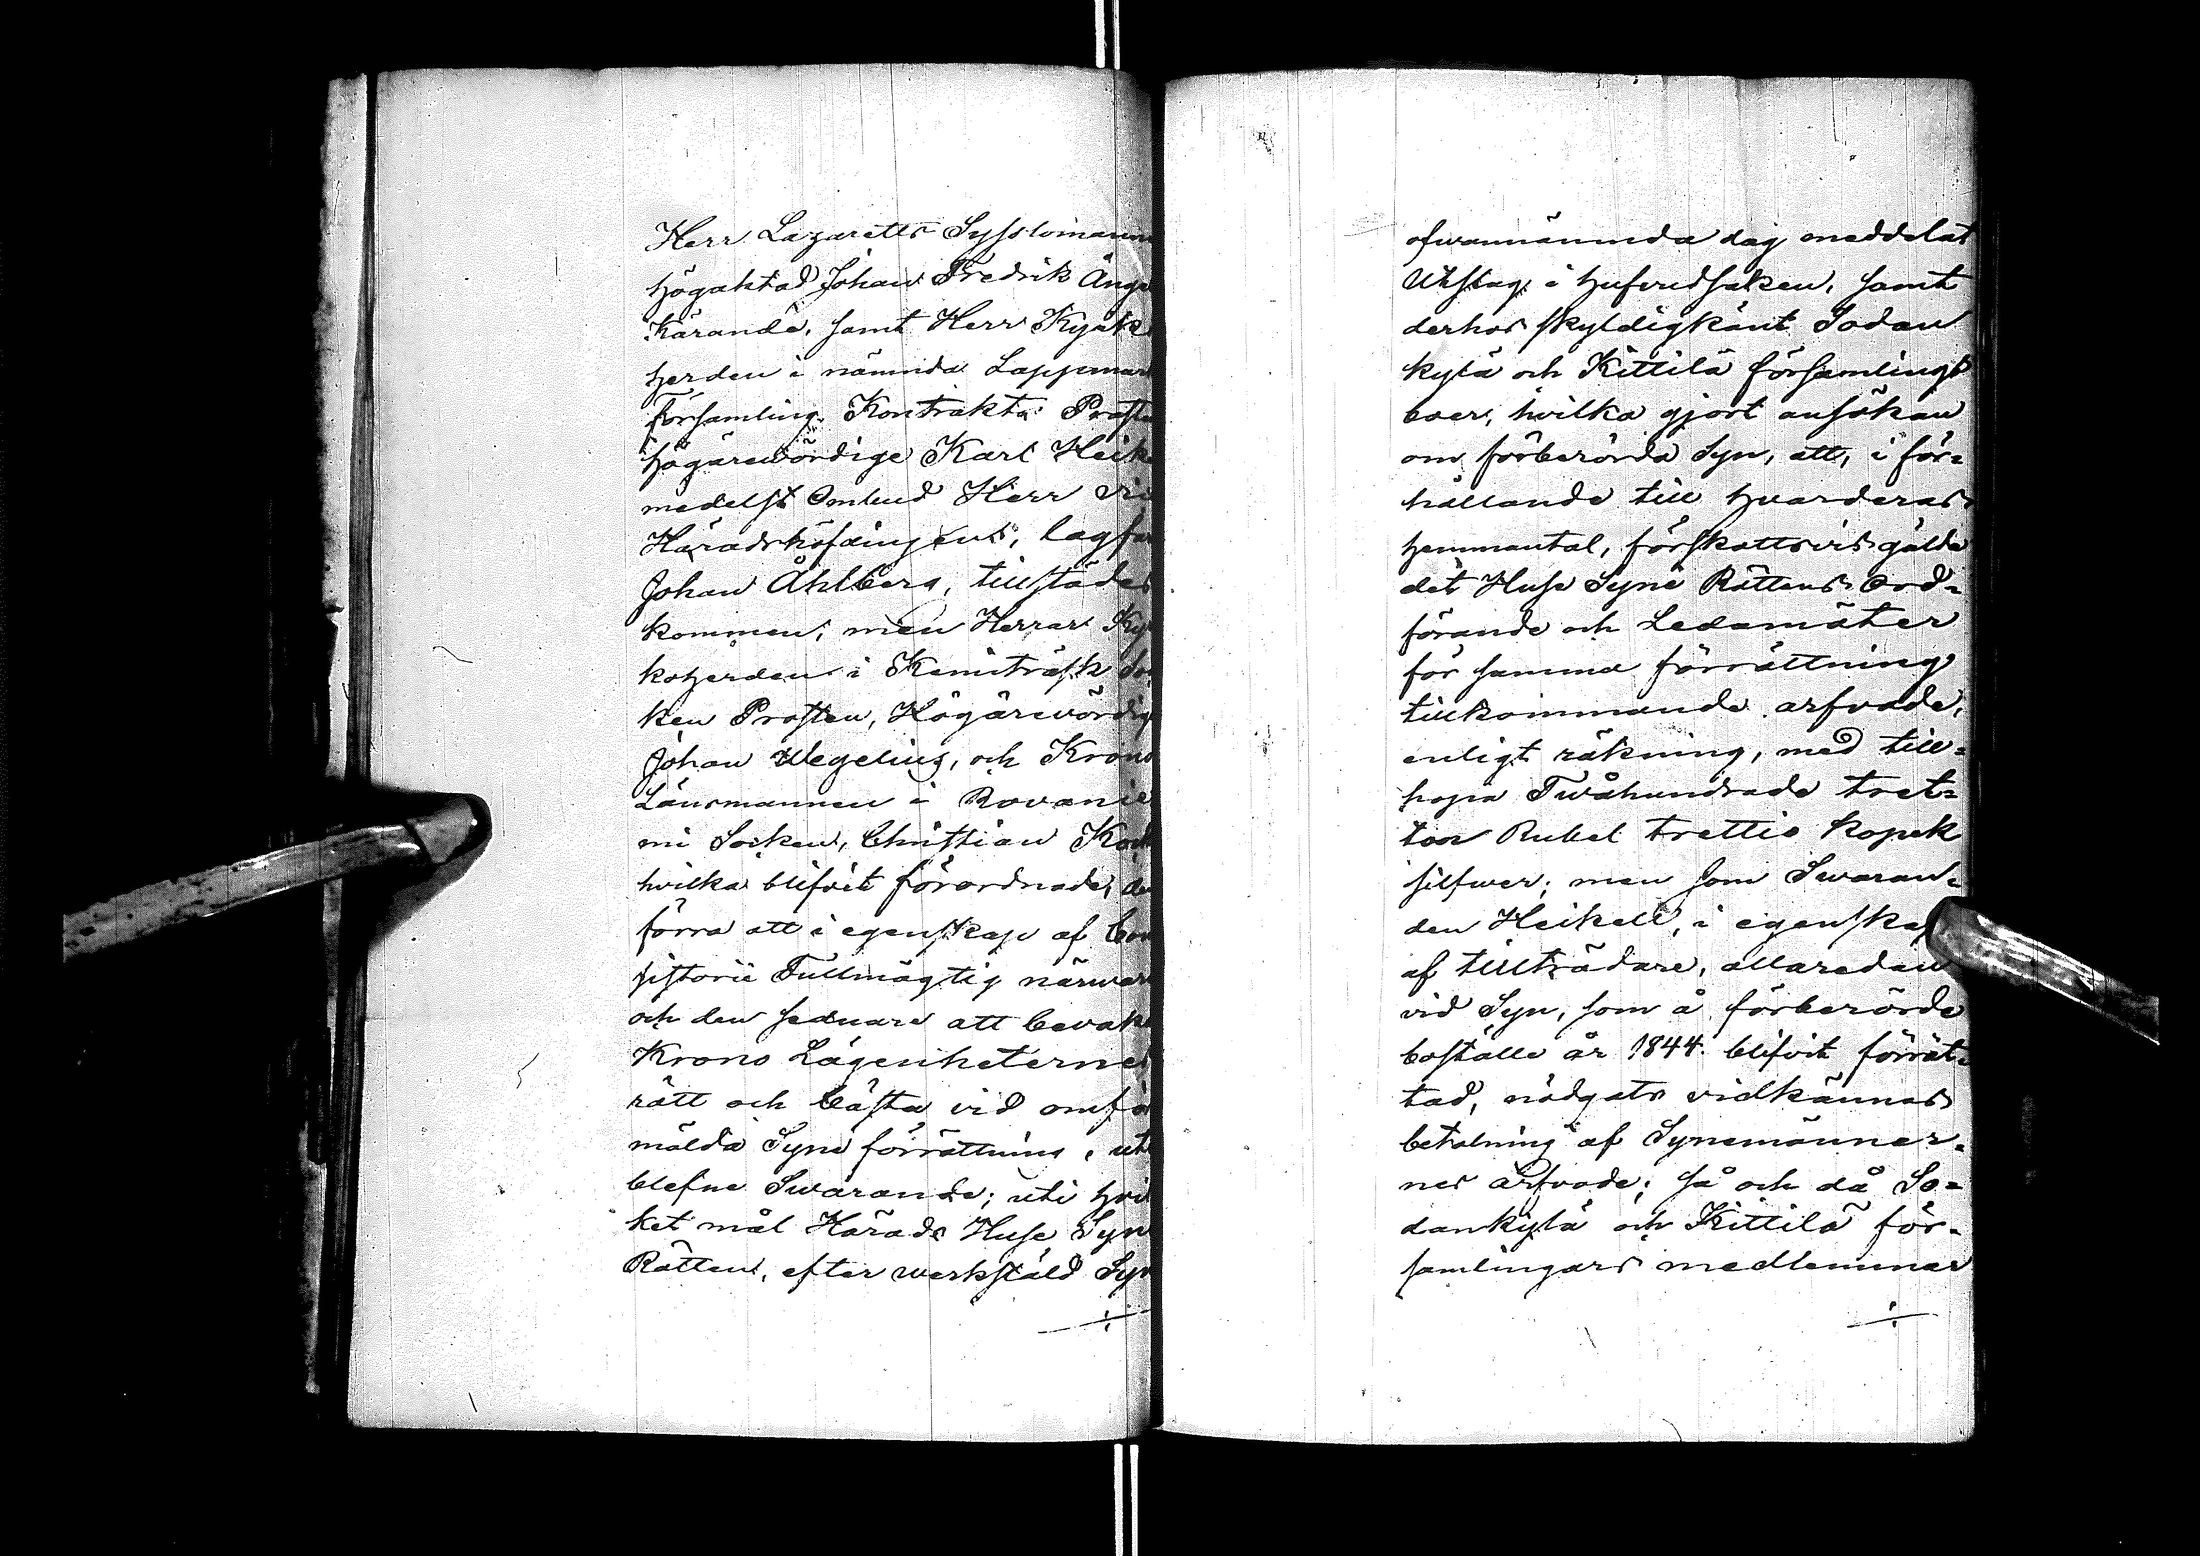 Herr Lazaretts Sysslomann
högaktad Johan Fredrik Änge
Kärande, samt Herr Kyrk
herden i nämnda Lappmar
församling, Kontrakts Proste
högärewördige Karl Heike
medelst Ombud Herr Vic
Häradshöfdingens, lagfar
Johan Åhlberg, tillstädes
kommen; men Herrar Kyr
koherden i Kemiträsk So
ken Prosten, Högärewördig
Johan Wegelius, och Krono
Länsmannen i Rovanie
mi Socken, Christian
hvilka blifvit förordnade, de
förra att i egenskap af Con
sistorii Fullmägtig närwar
och den sednare att bevak
Krono Lägenheternes
rätt och bästa vid omfö
mälda Syne förrättning, ut
blefne Swarande; uti hvil
ket mål Härads Huse Syn
Rätten, efter werkstäld Syn
÷
ofwannämnda dag meddelat
Utslag i hufvudsaken, samt
derhos skyldigkänt Sodan
kylä och Kittilä församlings
boer, hvilka gjort ansökan
om förberörda Syn, att, i för=
hållande till hvarderas
hemmantal, förskottsvis gälda
det Huse Syne Rättens Ord=
förande och Ledamöter
för samma förrättning
tillkommande arfvode,
enligt räkning, med till=
hopa Twåhundrade tret=
ton Rubel trettio kopek
silfwer; men som Swaran=
den Heikell, i egenskap
af tillträdare, allaredan
vid Syn, som å förberörde
boställe år 1844. blifvit förrät=
tad, nödgats vidkännas
betalning af Synemänner=
nes arfvode; så och då So=
dankylä och Kittilä för=
samlingars medlemmar
÷